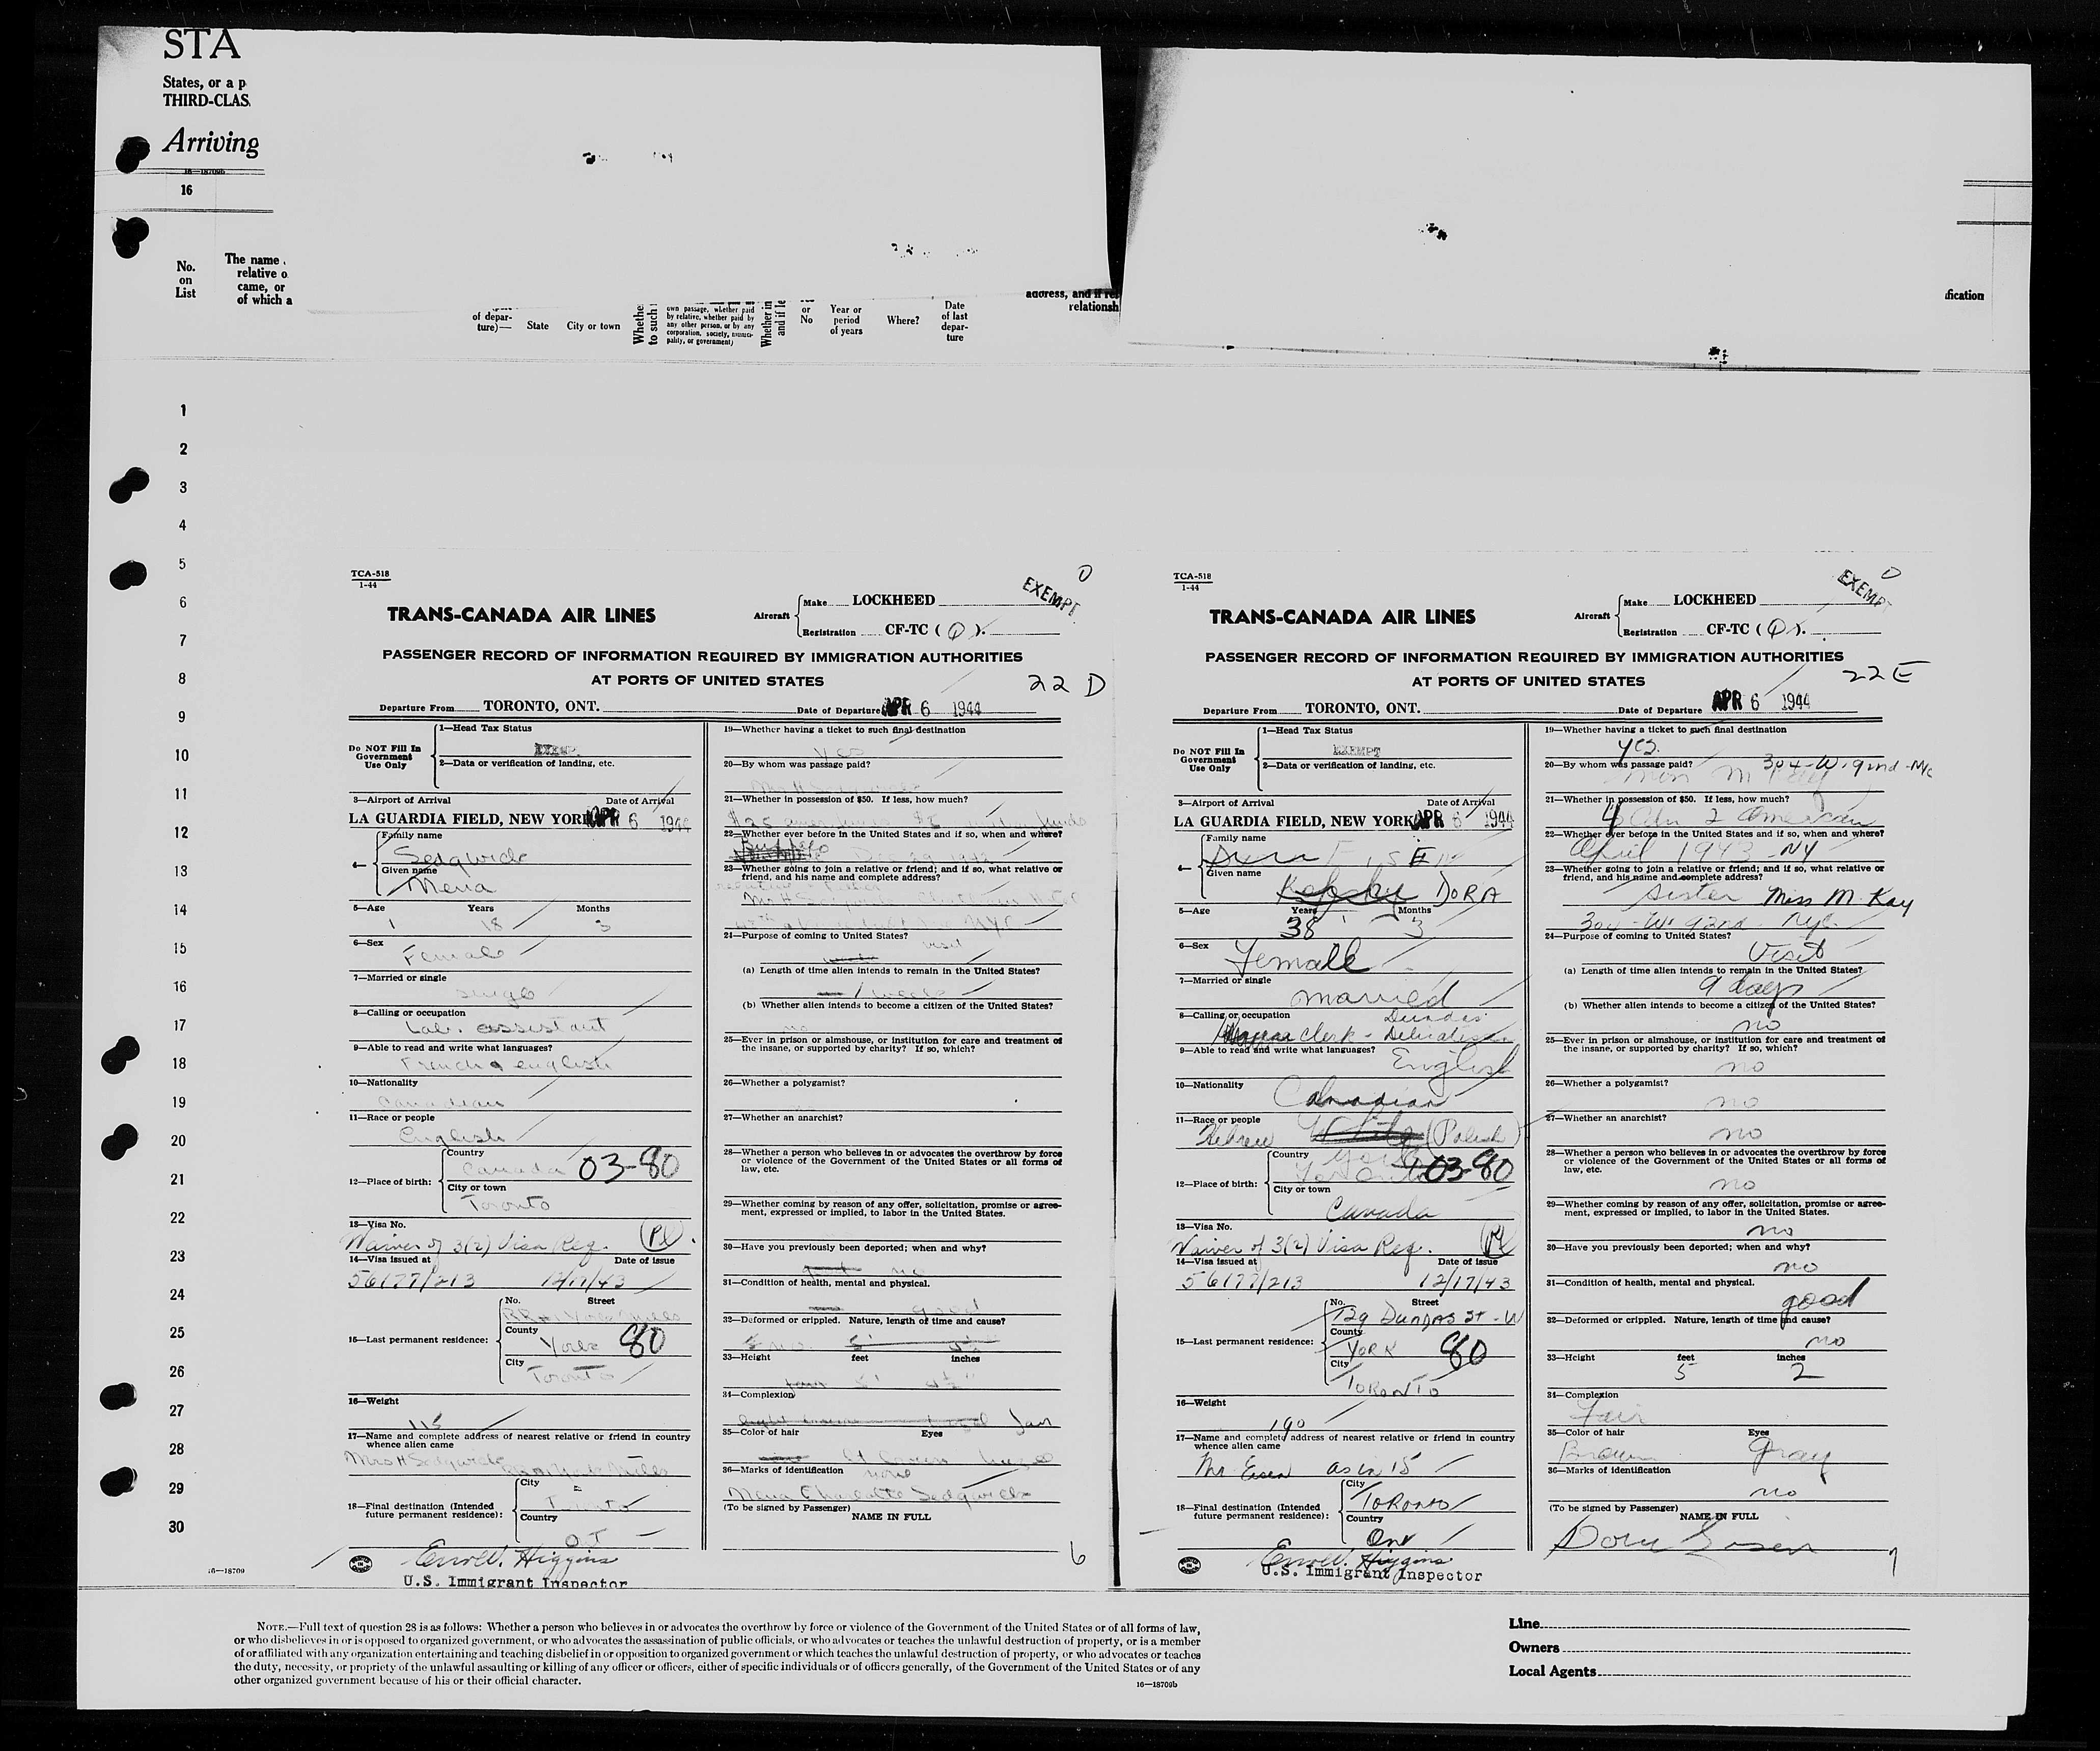 STA
States, or a p
THIRD-CLAS
Arriving
16—18709b
16
No.
on
List
The name
relative o
came, or
of which a
of depar-
ture)—
State
City or town
Whethe
to such
own passage, whether paid
by relative, whether paid by
any other person, or by any
corporation, society, munici-
pality, or government)
Whether in
and if le
or
No
Year or
period
of years
Where?
Date
of last
depar-
ture
address, and if rel
relationsh
fication
1
2
3
4
5
6
7
8
9
10
11
12
13
14
15
16
17
18
19
20
21
22
23
24
25
26
27
28
29
30
16—18709
TCA-518
1-44
EXEMPT
0
TRANS-CANADA AIR LINES
Aircraft
Make LOCKHEED
Registration CF-TC (Q).
PASSENGER RECORD OF INFORMATION REQUIRED BY IMMIGRATION AUTHORITIES
AT PORTS OF UNITED STATES
22 D
Departure From TORONTO, ONT. Date of Departure APR 6 1944
Do NOT Fill In
Government
Use Only
1—Head Tax Status
EXEMP
2—Data or verification of landing, etc.
3—Airport of Arrival Date of Arrival
LA GUARDIA FIELD, NEW YORK APR 6 1944
4—
Family name
Sedgwick
Given name
Mena
5—Age Years Months
18 3
6—Sex
Female
7—Married or single
single
8—Calling or occupation
Lab. assistant
9—Able to read and write what languages?
French & english
10—Nationality
Canadian
11—Race or people
English
12—Place of birth:
Country
Canada 03-80
City or town
Toronto
13—Visa No.
Waiver of 3(2) Visa Req.
14—Visa issued at Date of issue
56177/213 12/17/43
15—Last permanent residence:
No. Street
York Mills
County
York 80
City
Toronto
16—Weight
115
17—Name and complete address of nearest relative or friend in country
whence alien came
Mrs H Sedgwick York Mills
18—Final destination (Intended
future permanent residence):
City
Toronto
Country
Errol W. Higgins
U.S. Immigrant Inspector
19—Whether having a ticket to such final destination
yes
20—By whom was passage paid?
Mrs H Sedgwick
21—Whether in possession of $50. If less, how much?
$25 $5
22—Whether ever before in the United States and if so, when and where?
Buffalo
23—Whether going to join a relative or friend; and if so, what relative or
friend, and his name and complete address?
Mr H Sedgwick
NYC
24—Purpose of coming to United States?
visit
(a) Length of time alien intends to remain in the United States?
(b) Whether alien intends to become a citizen of the United States?
no
25—Ever in prison or almshouse, or institution for care and treatment of
the insane, or supported by charity? If so, which?
26—Whether a polygamist?
27—Whether an anarchist?
28—Whether a person who believes in or advocates the overthrow by force
or violence of the Government of the United States or all forms of
law, etc.
29—Whether coming by reason of any offer, solicitation, promise or agree-
ment, expressed or implied, to labor in the United States.
30—Have you previously been deported; when and why?
no
31—Condition of health, mental and physical.
good
32—Deformed or crippled. Nature, length of time and cause?
33—Height feet inches
5' 4½"
34—Complexion
fair
35—Color of hair Eyes
lt brown hazel
36—Marks of identification
none
Mena Charlotte Sedgwick
(To be signed by Passenger)
NAME IN FULL
6
TCA-518
1-44
EXEMPT
0
TRANS-CANADA AIR LINES
Aircraft
Make LOCKHEED
Registration CF-TC (Q).
PASSENGER RECORD OF INFORMATION REQUIRED BY IMMIGRATION AUTHORITIES
AT PORTS OF UNITED STATES
22 E
Departure From TORONTO, ONT. Date of Departure APR 6 1944
Do NOT Fill In
Government
Use Only
1—Head Tax Status
EXEMPT
2—Data or verification of landing, etc.
3—Airport of Arrival Date of Arrival
LA GUARDIA FIELD, NEW YORK APR 6 1944
4—
Family name
Given name
DORA
5—Age Years Months
38 3
6—Sex
Female
7—Married or single
married
8—Calling or occupation
Dundas
clerk - Delicatessen
9—Able to read and write what languages?
English
10—Nationality
Canadian
11—Race or people
Hebrew White (Polish)
12—Place of birth:
Country
03-80
City or town
Canada
13—Visa No.
Waiver of 3(2) Visa Req.
14—Visa issued at Date of issue
56177/213 12/17/43
15—Last permanent residence:
No. Street
729 DUNDAS ST - W
County
YORK 80
City
TORONTO
16—Weight
190
17—Name and complete address of nearest relative or friend in country
whence alien came
Mr Eisen as in 15
18—Final destination (Intended
future permanent residence):
City
TORONTO
Country
Ont
Errol W. Higgins
U.S. Immigrant Inspector
19—Whether having a ticket to such final destination
yes.
20—By whom was passage paid?
304-W. 92nd - NYC
21—Whether in possession of $50. If less, how much?
2 American
22—Whether ever before in the United States and if so, when and where?
April 1943 - NY
23—Whether going to join a relative or friend; and if so, what relative or
friend, and his name and complete address?
Sister Miss M. Kay
304-W. 92nd NYC
24—Purpose of coming to United States?
Visit
(a) Length of time alien intends to remain in the United States?
9 days
(b) Whether alien intends to become a citizen of the United States?
no
25—Ever in prison or almshouse, or institution for care and treatment of
the insane, or supported by charity? If so, which?
no
26—Whether a polygamist?
no
27—Whether an anarchist?
no
28—Whether a person who believes in or advocates the overthrow by force
or violence of the Government of the United States or all forms of
law, etc.
no
29—Whether coming by reason of any offer, solicitation, promise or agree-
ment, expressed or implied, to labor in the United States.
no
30—Have you previously been deported; when and why?
no
31—Condition of health, mental and physical.
good
32—Deformed or crippled. Nature, length of time and cause?
no
33—Height feet inches
5 2
34—Complexion
Fair
35—Color of hair Eyes
Brown Gray
36—Marks of identification
no
(To be signed by Passenger)
NAME IN FULL
Dora Eisen
7
NOTE.—Full text of question 28 is as follows: Whether a person who believes in or advocates the overthrow by force or violence of the Government of the United States or of all forms of law,
or who disbelieves in or is opposed to organized government, or who advocates the assassination of public officials, or who advocates or teaches the unlawful destruction of property, or is a member
of or affiliated with any organization entertaining and teaching disbelief in or opposition to organized government or which teaches the unlawful destruction of property, or who advocates or teaches
the duty, necessity, or propriety of the unlawful assaulting or killing of any officer or officers, either of specific individuals or of officers generally, of the Government of the United States or of any
other organized government because of his or their official character.
16—18709b
Line
Owners
Local Agents